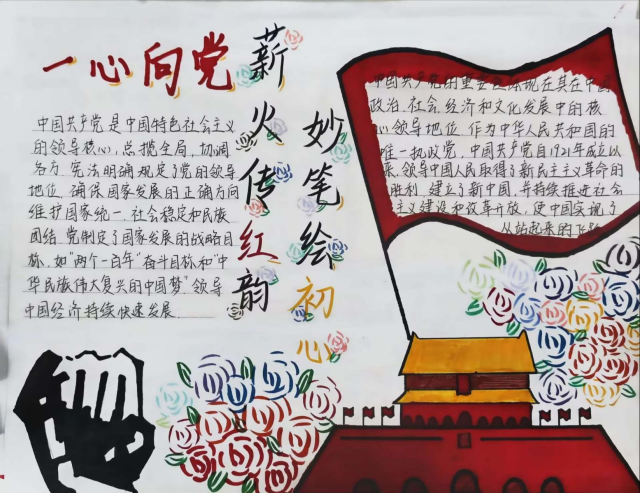 一心向党
中国共产党是中国特色社会主义
的领导核心，总揽全局，协调
各方，宪法明确规定了党的领导
地位，确保国家发展的正确方向
维护国家统一、社会稳定和民族
团结。党制定了国家发展的战略目
标，如“两个一百年”奋斗目标和“中
华民族伟大复兴的中国梦”，领导
中国经济持续快速发展
薪火传红韵
妙笔绘初心
中国共产党的重要性体现在其在中国
政治、社会、经济和文化发展中的核
心领导地位，作为中华人民共和国的
唯一执政党，中国共产党自1921年成立以
来，领导中国人民取得了新民主主义革命的
胜利，建立了新中国，并持续推进社会
主义建设和改革开放，使中国实现了
从站起来的飞跃